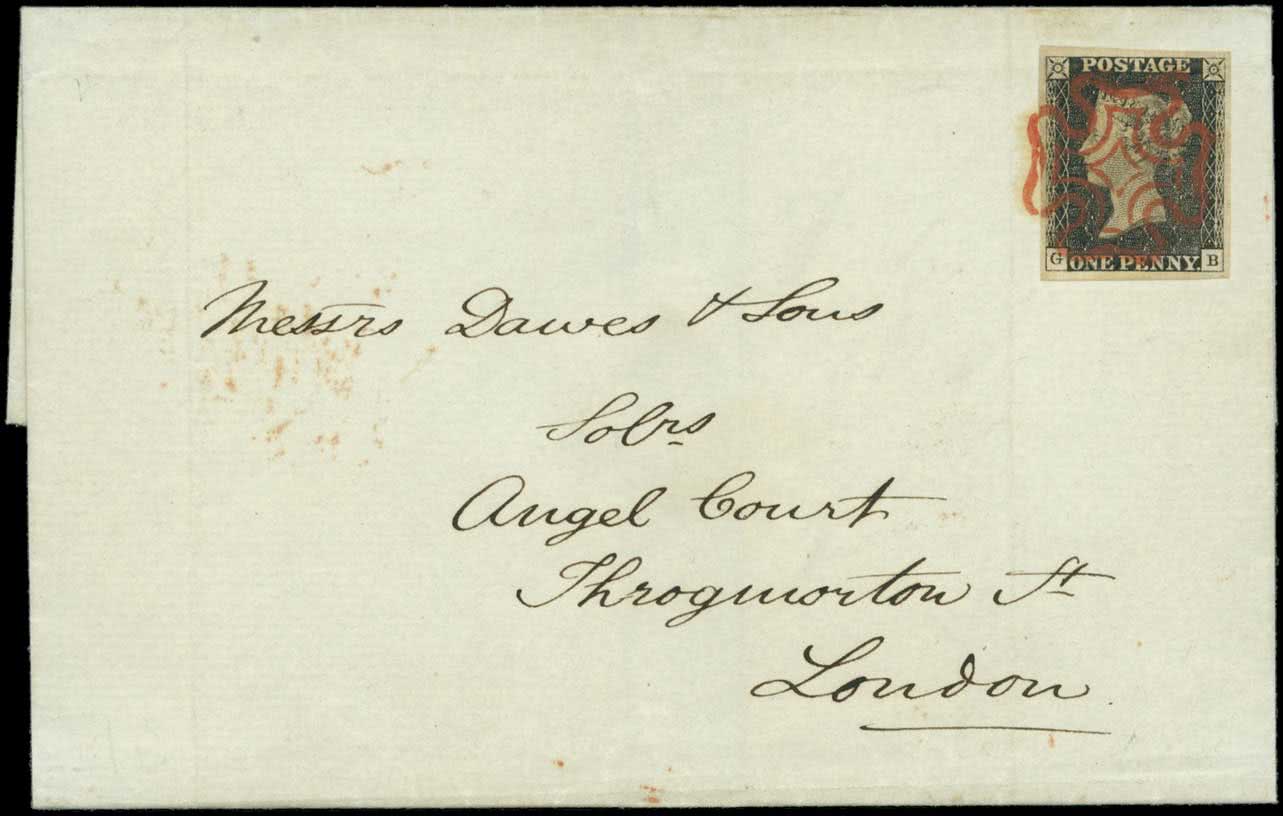 POSTAGE
G ONE PENNY. B
Messrs Dawes & Sons
Solrs
Angel Court
Throgmorton St
London